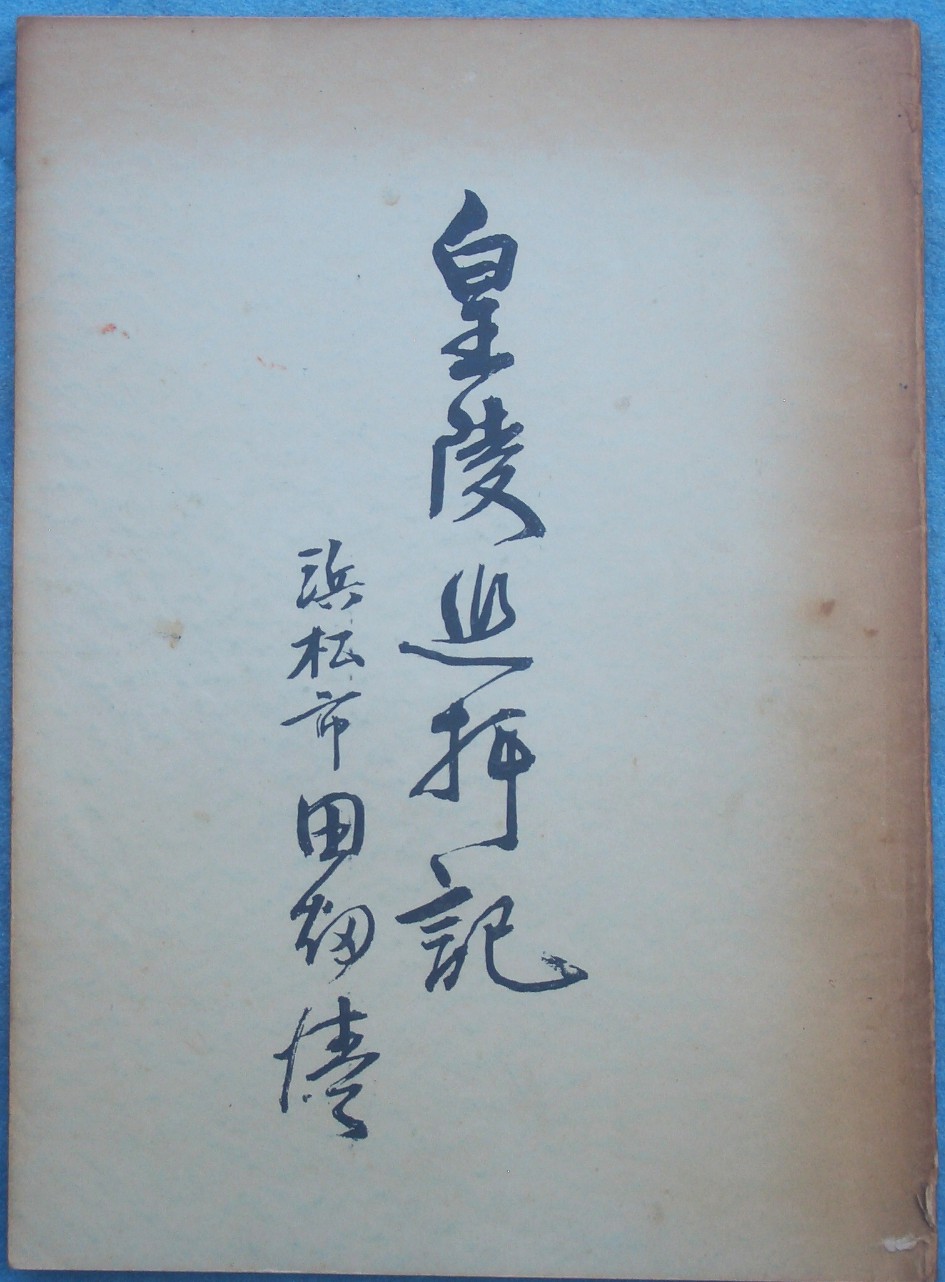 皇陵巡拝記
浜松市田畑